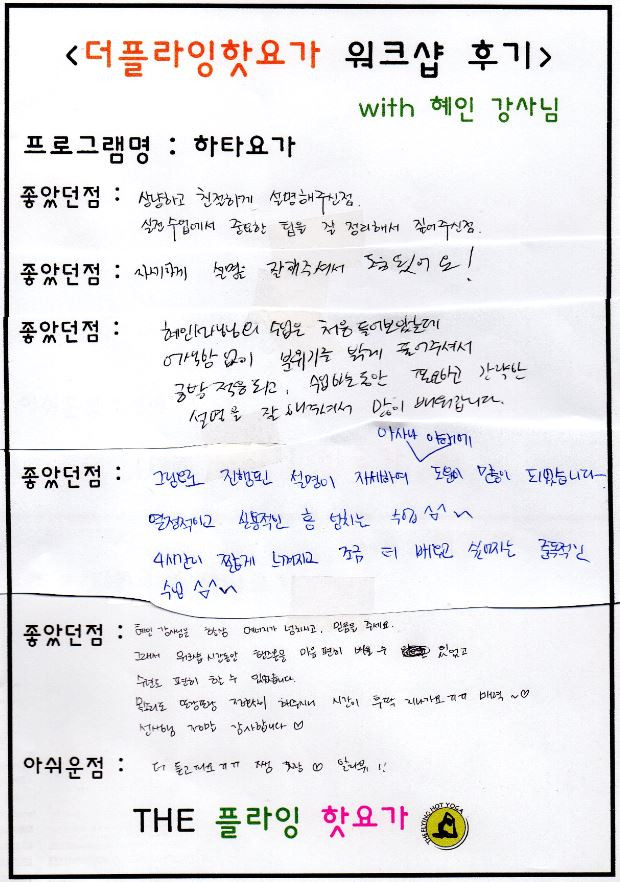 <더플라잉핫요가 워크샵 후기>
with 혜인 강사님
프로그램명 : 하타요가
좋았던점 : 상냥하고 친절하게 설명해주신점.
실전수업에서 중요한 팁을 잘 정리해서 짚어주신점.
좋았던점 : 자세하게 설명을 잘해주셔서 도움됬어요!
좋았던점 : 혜인강사님의 수업은 처음 들어보았는데
어색함 없이 분위기를 밝게 풀어주셔서
금방 적응되고, 수업하는동안 필요하고 간략한
설명을 잘 해주셔서 많이 배워갑니다.
아사나 이해에
좋았던점 : 그림으로 진행된 설명이 자세하여 도움이 많이 되었습니다~
열정적이고 실용적인 흥 넘치는 수업 ^^~
4시간이 짧게 느껴지고 조금 더 배우고 싶어지는 중독적인
수업 ^^~
좋았던점 : 혜인 강사님은 항상 에너지가 넘치시고, 믿음을 주세요.
그래서 워크샵 시간동안 핸즈온을 마음 편히 받을 수 있었고
수련도 편히 할 수 있었습니다.
목소리도 또랑또랑 해주시니 시간이 후딱 지나가요 ㅠㅠ 매력 ~♡
선생님 감사합니다 ♡
아쉬운점 : 더 듣고파요 ㅠㅠ ♡ !!
THE 플라잉 핫요가
THE FLYING HOT YOGA